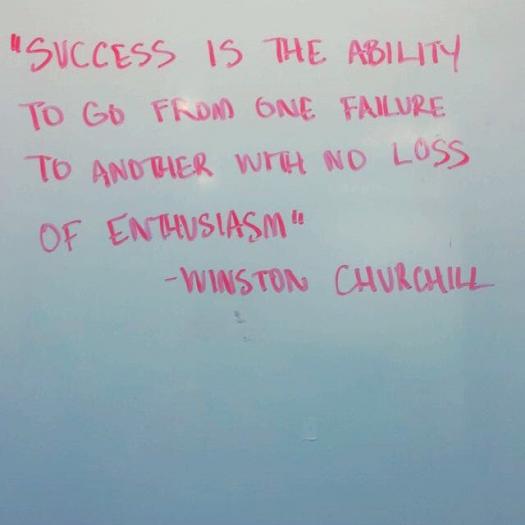 "SUCCESS IS THE ABILITY
TO GO FROM ONE FAILURE
TO ANOTHER WITH NO LOSS
OF ENTHUSIASM"
-WINSTON CHURCHILL